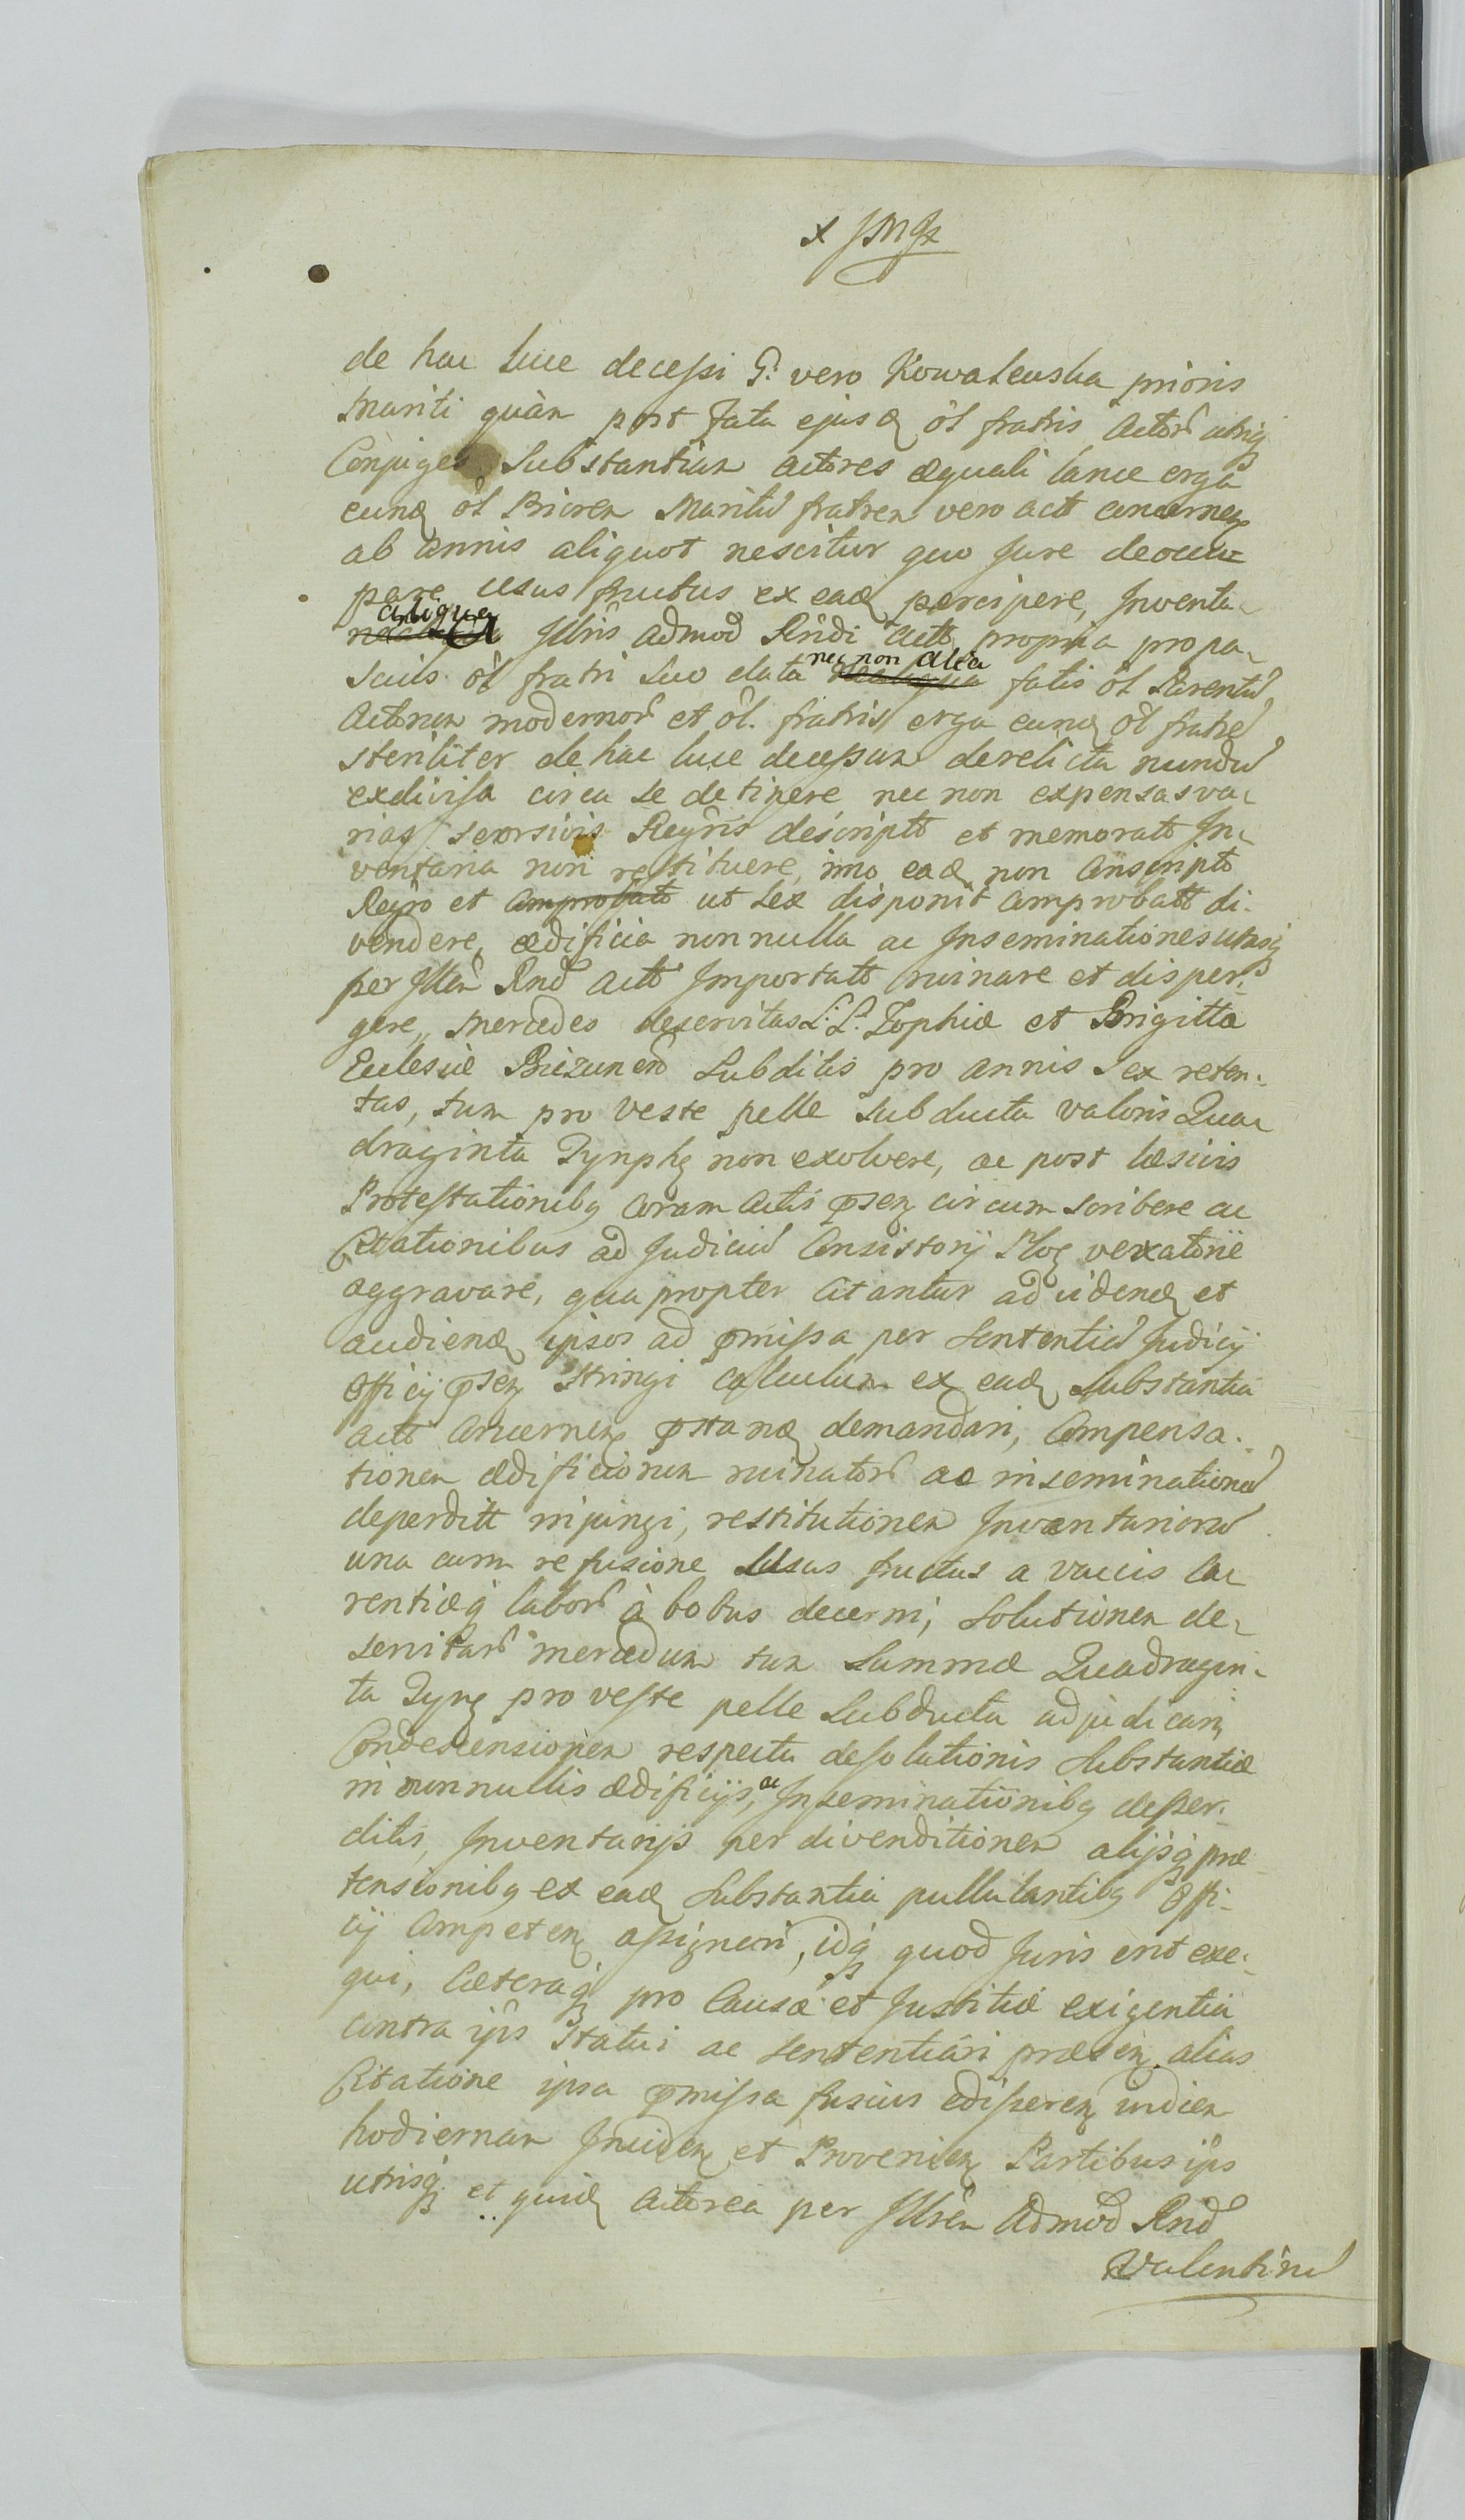 x JMJx
de hac luce decessi G: vero Kowalewska prioris
Mariti quàm post fata ejusd ôl fratris Actor utriq
Conjuges Substantiam actores æquali lance erga
eund ôl Priorem Maritu fratrem vero actt concernen
ab annis aliquot nescitur quo Jure deoccu=
pare usus fructus ex ead percipere, Inventa-
aliqua
Illris admod Rndi actt propria pro pa-
scuis ôl fratri suo data nec non alia fatis ôl Parentu
Actorum modernor et ôl. fratris erga eund ôl fratre
steriliter de hac luce decessum derelicta nundu
exdivisa circa se detinere nec non expensas va-
rias seorsivis Regris descriptt et memoratt In-
ventaria non restituere, imo ead non Conscriptt
Regro et comprobatt ut Lex disponit comprobatt di-
vendere, ædificia nonnulla ac Inseminationes utasq
per Illrem Rnd actt Importatt ruinare et disper-
gere, Mercedes deservitas L: L: Zophiæ et Brigittæ
Ecclesiæ Biezunen Subditis pro annis sex reten-
tas, tum pro veste pelle subducta valoris Qua-
draginta Tynph non exolvere, ac post læsivis
Protestationibq coram Actis psen circumscribere ac
Citationibus ad Judiciu Consistorij Ploc vexatorie
aggravare, qua propter citantur ad vidend et
audiend ipsos ad pmissa per Sententiu Judicij
Officij psen stringi calculum ex ead Substantia
actt Concernen pstand demandari, Compensa-
tionem ædificiorum ruinator ac inseminationu
deperditt injungi, restitutionem Inventarioru
una cum refusione Usus fructus a vaccis Ca-
rentiæq labor à bobus decerni, solutionem de-
servitar mercedum tum Summæ Quadragin-
ta Tynf pro veste pelle Subducta adjudicari,
Condescensionem respectu desolationis Substantiæ
in nonnullis ædificijs, ac Inseminationibq deper-
ditis, Inventarijs per divenditionem alijsq præ-
tensionibq ex ead Substantia pullulantibq Offi-
cij Competen assignari, idq quod Juris erit exe-
qui, Cæteraq pro Causæ et Justitiæ exigentia
contra ips statui ac sententiari præsen alias
Citatione ipsa pmissa fusius edisseren in diem
hodiernam Inciden et Provenien Partibus ips
utrisq et quid Actorea per Illrem Admod Rnd
Valentinu